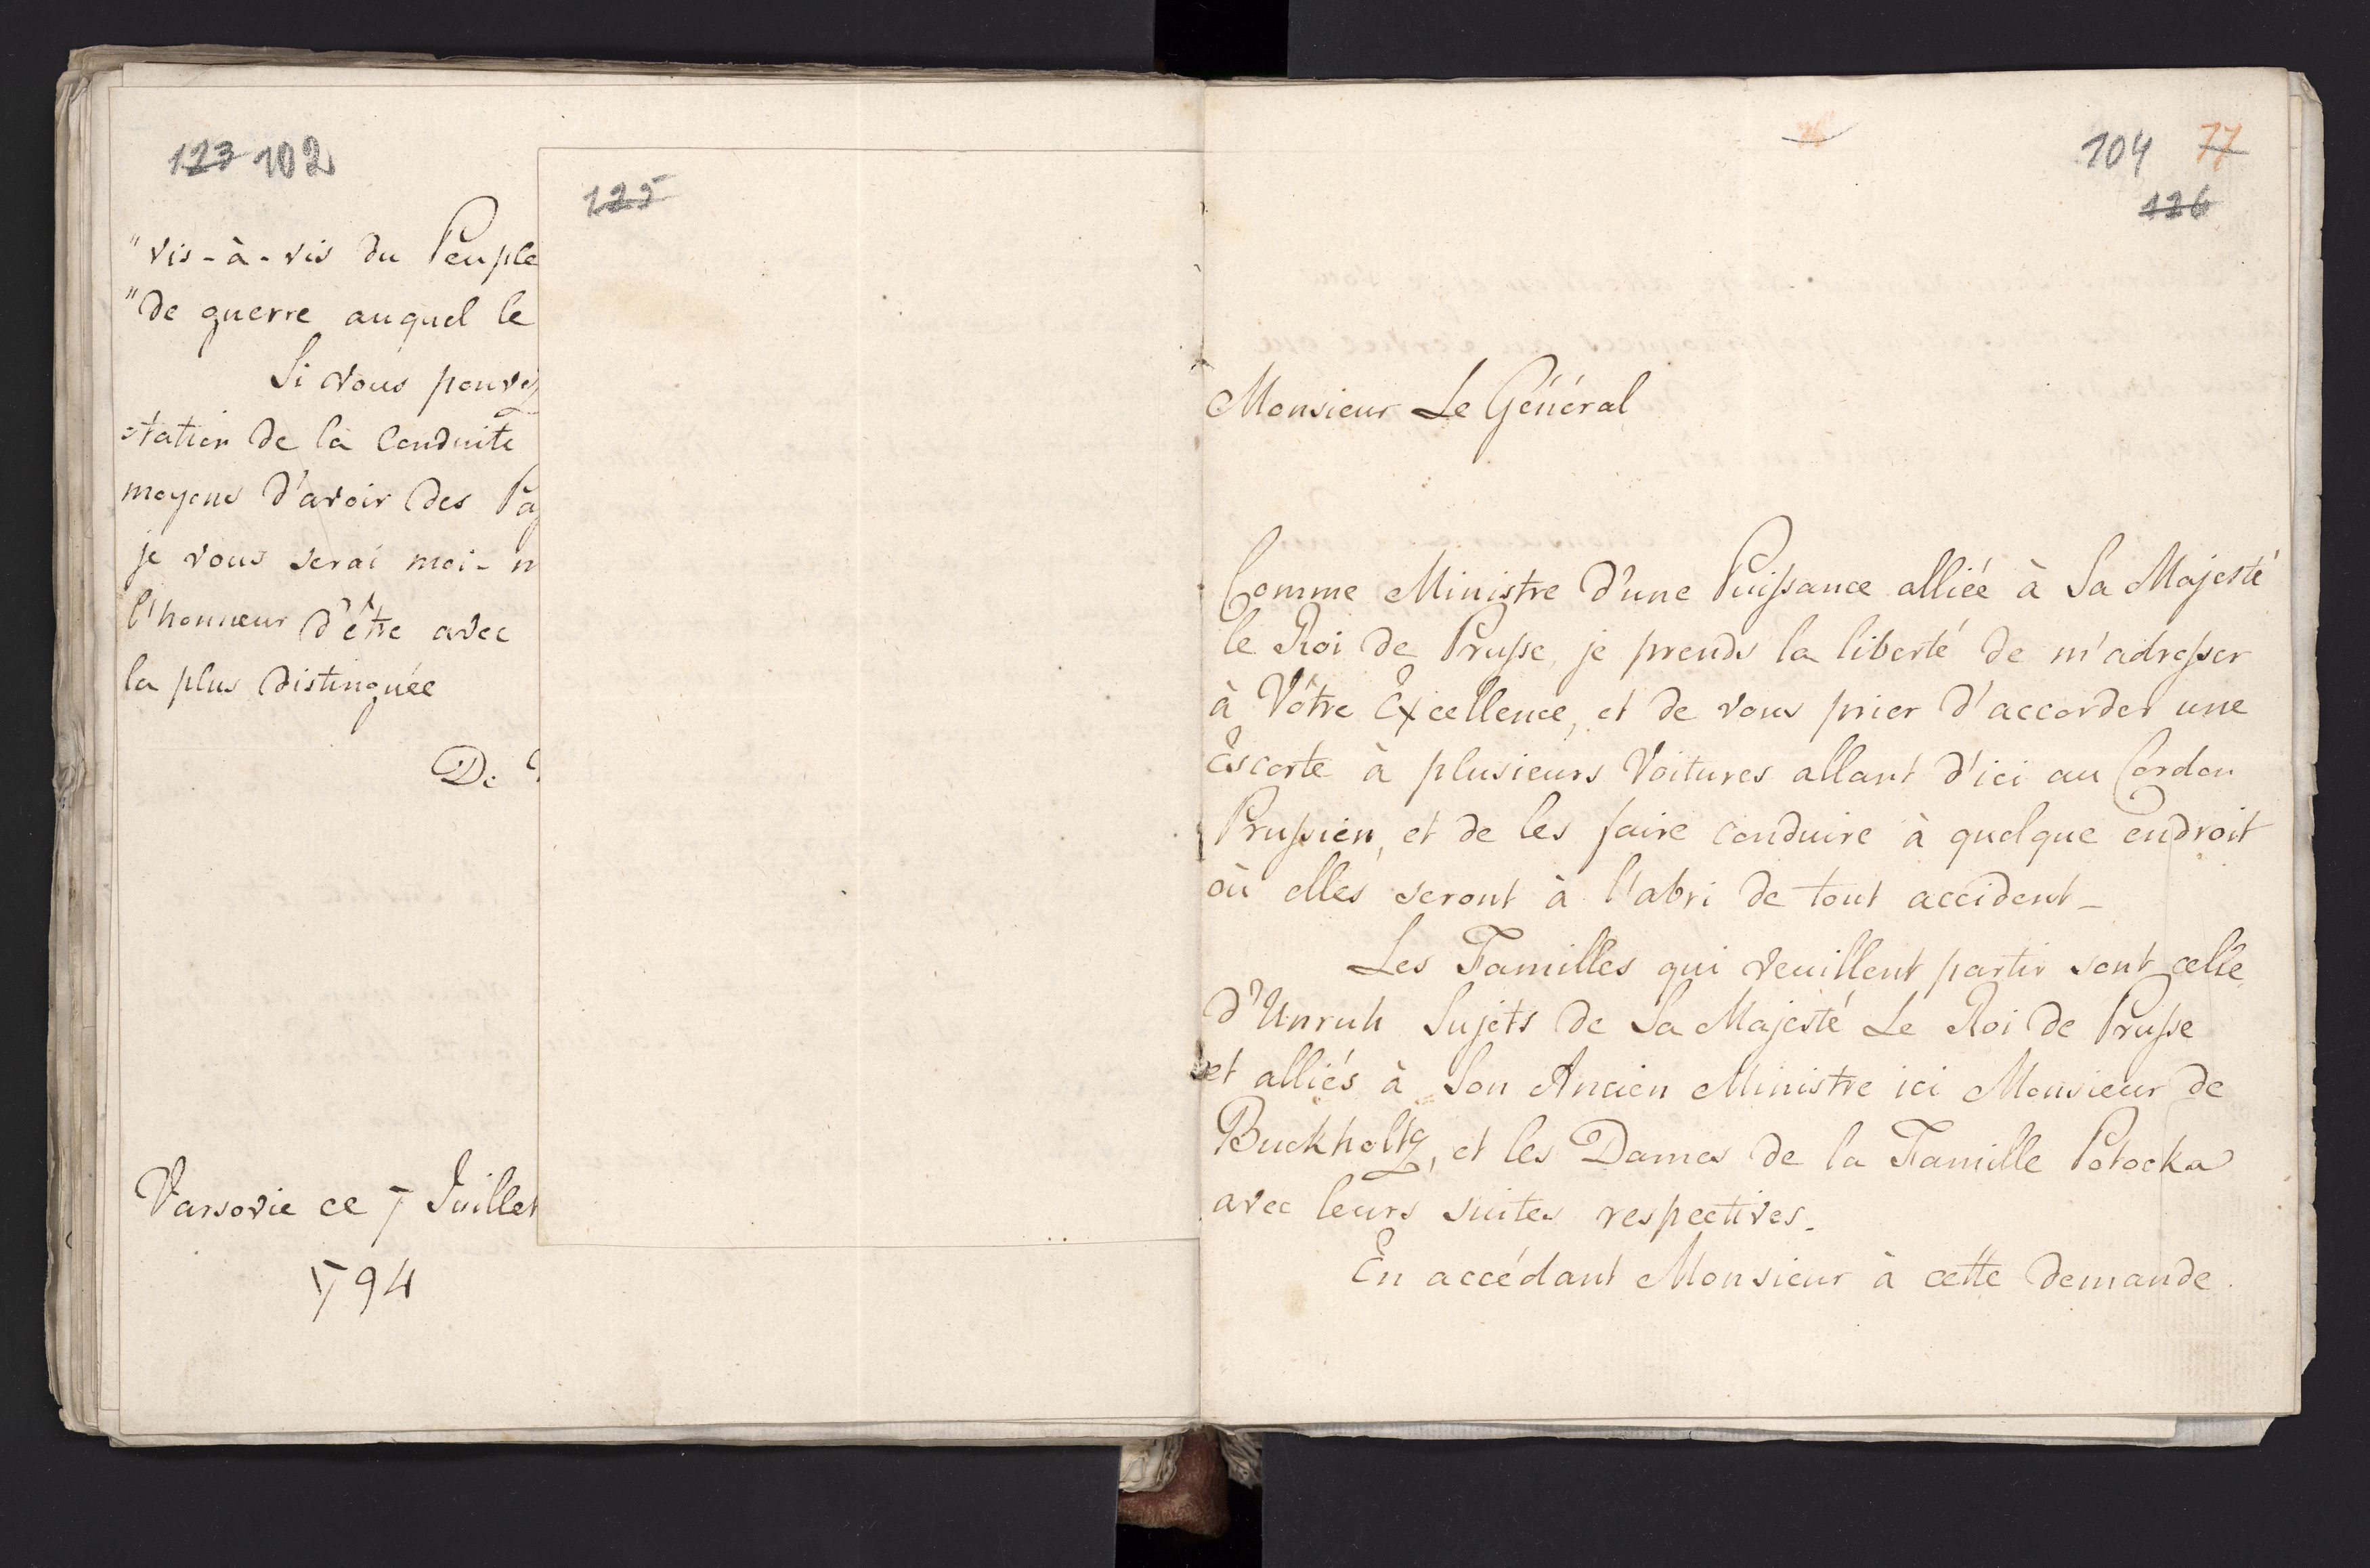 123 102
"vis-à-vis du Peuple
"de guerre auquel le
Si vous pouvez
station de la Conduite
moyens d'avoir des
je vous serai moi-
l'honneur d'être avec
la plus distinguée
De
Varsovie ce 7 Juillet
794
125
104 77
126
Monsieur Le Général
Comme Ministre d'une Puissance alliée à Sa Majesté
le Roi de Prusse, je prends la liberté de m'adresser
à Vôtre Excellence, et de vous prier d'accorder une
Escorte à plusieurs Voitures allant d'ici au Cordon
Prussien, et de les faire conduire à quelque endroit
où elles seront à l'abri de tout accident_
Les Familles qui veuillent partir sont celle
d'Unruh Sujets de Sa Majesté Le Roi de Prusse
et alliés à Son Ancien Ministre ici Monsieur de
Buckholtz, et les Dames de la Famille Potocka
avec leurs suites respectives_
En accédant Monsieur à cette demande.